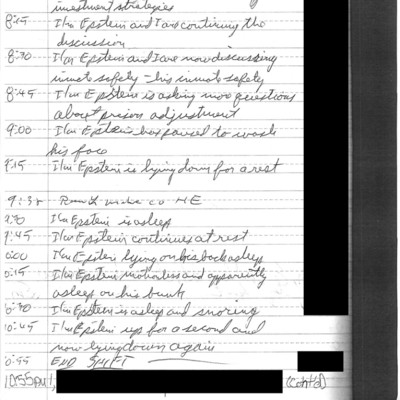 investment strategies
8:15 I/m Epstein and I are continuing the
discussion
8:30 I/m Epstein and I are now discussing
inmate safety - his inmate safety
8:45 I/m Epstein is asking more questions
about prison adjustment
9:00 I/m Epstein has paused to wash
his face
9:15 I/m Epstein is lying down for a rest
9:3
9:30 I/m Epstein is asleep
9:45 I/m Epstein continues at rest
10:00 I/m Epstein lying on his back asleep
10:15 I/m Epstein motionless and apparently
asleep on his bunk
10:30 I/m Epstein is asleep and snoring
10:45 I/m Epstein up for a second and
now lying down again
END SHIFT
10:55PM (Cont'd)